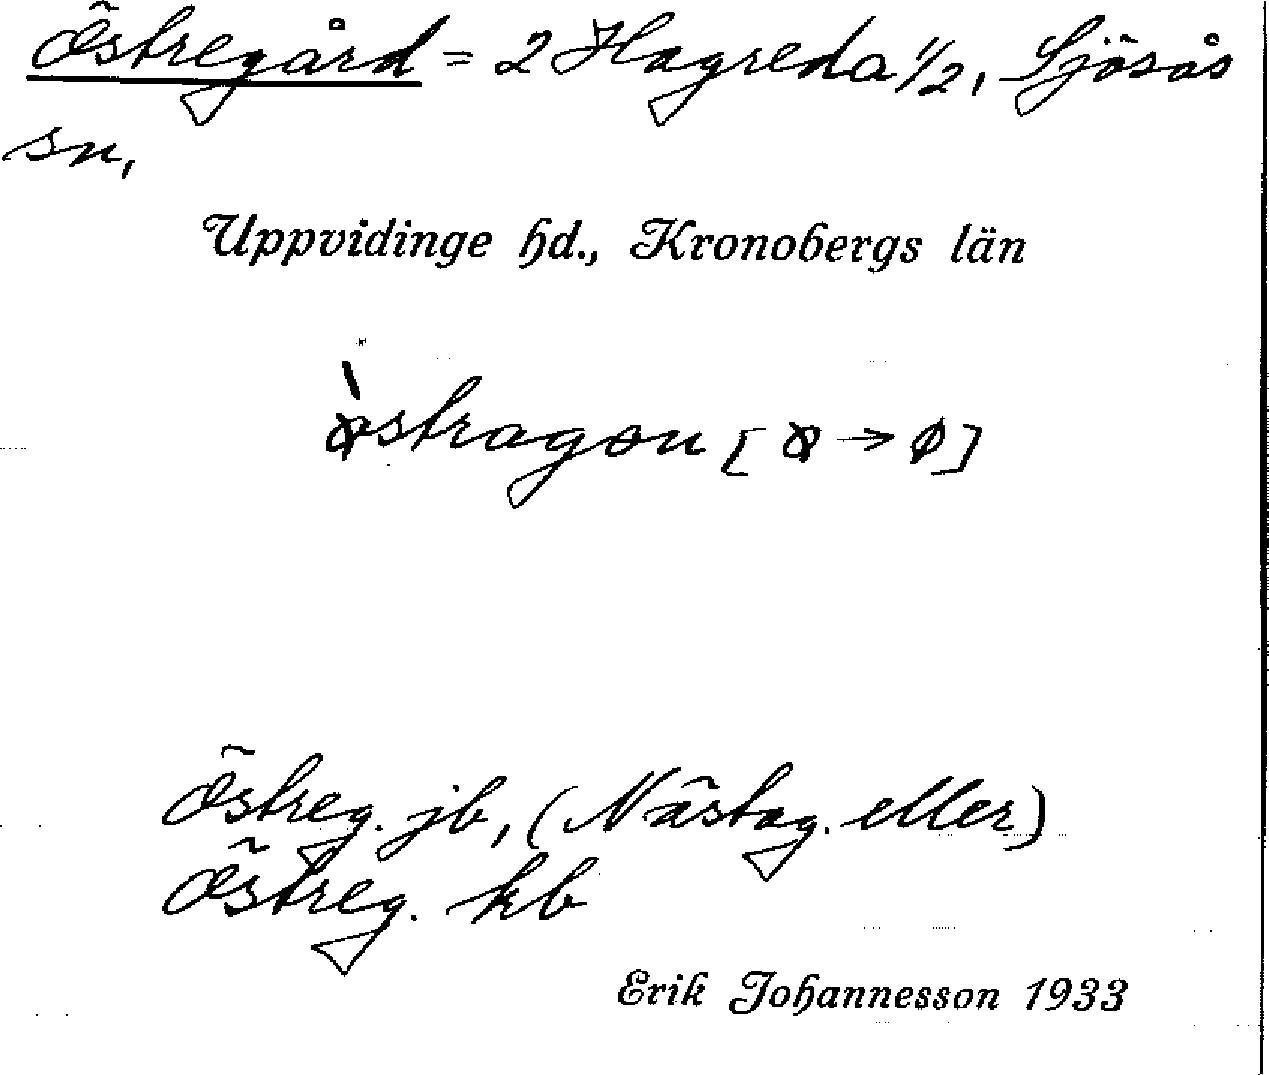 Östregård = 2 Hagreda 1/2, Sjösås
sn,
Uppvidinge hd., Kronobergs län
östragon [ → ø]
Östreg. jb, (Nästag. eller)
Östreg. kb
Erik Johannesson 1933